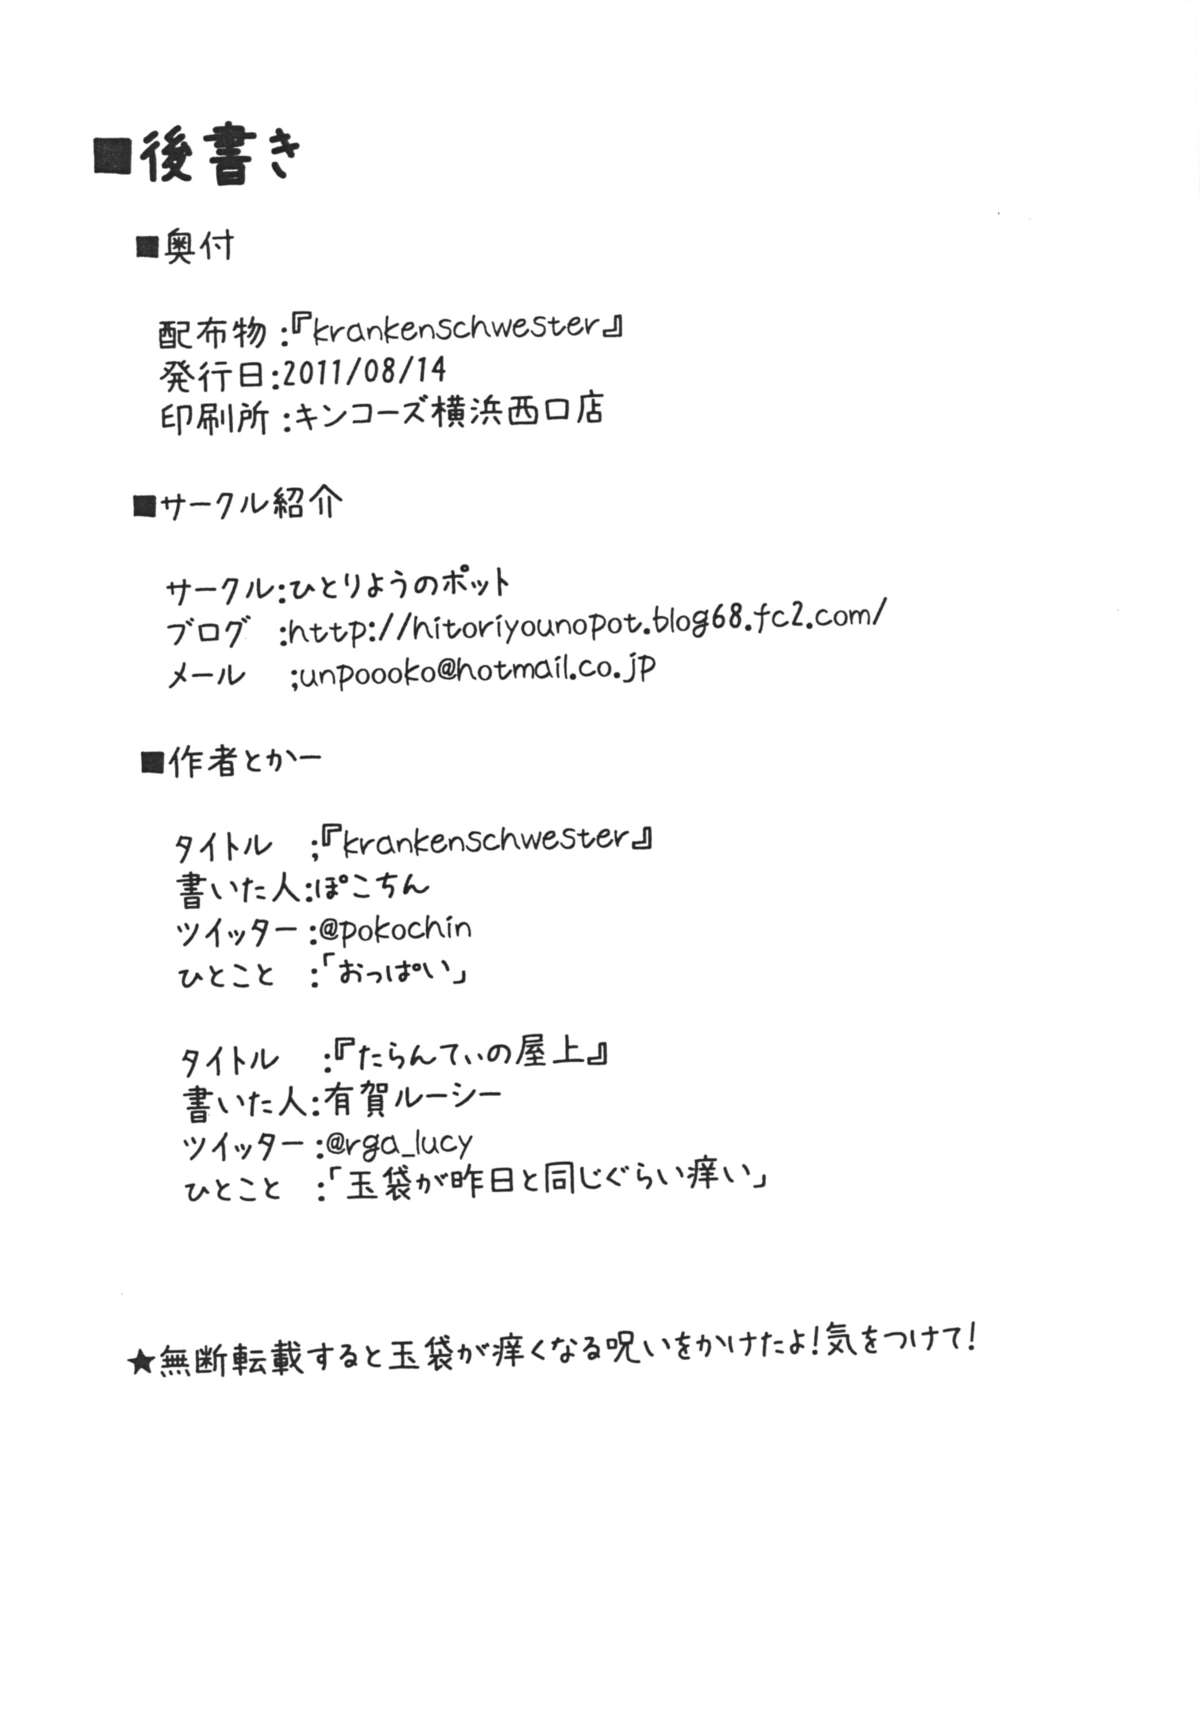 ■後書き
■奥付
配布物:『krankenschwester』
発行日:2011/08/14
印刷所:キンコーズ横浜西口店
■サークル紹介
サークル:ひとりようのポット
ブログ:http://hitoriyounopot.blog68.fc2.com/
メール;unpoooko@hotmail.co.jp
■作者とかー
タイトル;『krankenschwester』
書いた人:ぽこちん
ツイッター:@pokochin
ひとこと:「おっぱい」
タイトル:『たらんてぃの屋上』
書いた人:有賀ルーシー
ツイッター:@rga_lucy
ひとこと:「玉袋が昨日と同じぐらい痒い」
★無断転載すると玉袋が痒くなる呪いをかけたよ!気をつけて!